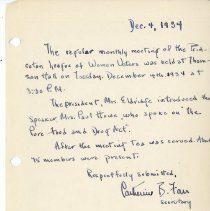 Dec. 4, 1934
The regular monthly meeting of the Prin-
ceton League of Women Voters was held at Thom-
son Hall on Tuesday, December 4th, 1934 at
3:30 P.M.
The president, Mrs. Eldridge introduced the
speaker Mrs. Paul who spoke on the
Pure Food and Drug Act.
After the meeting Tea was served. About
15 members were present.
Respectfully submitted,
Catherine B. Farr
Secretary